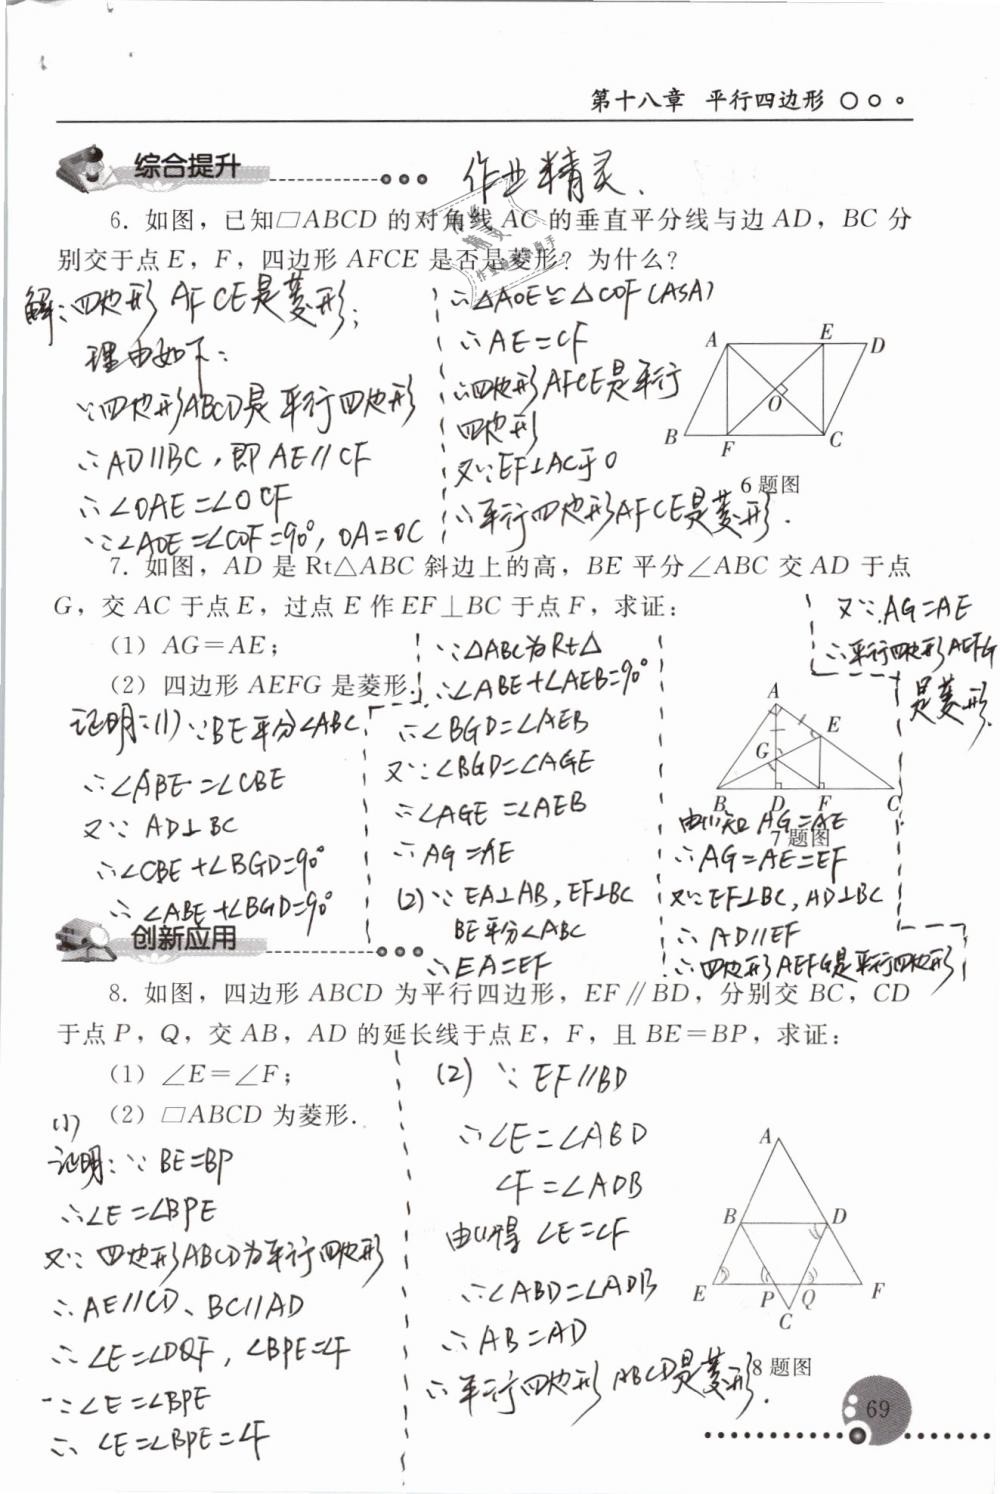 第十八章 平行四边形
综合提升
作业精灵.
6. 如图，已知□ABCD 的对角线 AC 的垂直平分线与边 AD，BC 分
别交于点 E，F，四边形 AFCE 是否是菱形？为什么？
解:四边形 AFCE是菱形;
理由如下:
∵四边形ABCD是平行四边形
∴AD∥BC,即AE∥CF
∴∠OAE=∠OCF
∵∠AOE=∠COF=90°, OA=OC
∴△AOE≌△COF(ASA)
∴AE=CF
∴四边形AFCE是平行
四边形
又∵EF⊥AC于O
∴平行四边形AFCE是菱形.
A
E
D
O
B
F
C
6 题图
7. 如图，AD 是 Rt△ABC 斜边上的高，BE 平分∠ABC 交 AD 于点
G，交 AC 于点 E，过点 E 作 EF⊥BC 于点 F，求证：
(1) AG=AE；
(2) 四边形 AEFG 是菱形.
证明:(1)∵BE平分∠ABC
∴∠ABE=∠CBE
又∵ AD⊥BC
∴∠CBE+∠BGD=90°
∴∠ABE+∠BGD=90°
∵△ABC为Rt△
∴∠ABE+∠AEB=90°
∴∠BGD=∠AEB
又∵∠BGD=∠AGE
∴∠AGE=∠AEB
∴AG=AE
(2)∵EA⊥AB,EF⊥BC
BE平分∠ABC
∴EA=EF
A
E
G
B
D
F
C
7 题图
由(1)知AG=AE
∴AG=AE=EF
又∵EF⊥BC,AD⊥BC
∴AD∥EF
∴四边形AEFG是平行四边形
又∵AG=AE
∴平行四边形AEFG
是菱形.
创新应用
8. 如图，四边形 ABCD 为平行四边形，EF∥BD，分别交 BC，CD
于点 P，Q，交 AB，AD 的延长线于点 E，F，且 BE=BP，求证：
(1) ∠E=∠F；
(2) □ABCD 为菱形.
(1)
证明:∵ BE=BP
∴∠E=∠BPE
又∵ 四边形ABCD为平行四边形
∴AE∥CD、BC∥AD
∴∠E=∠DQF, ∠BPE=∠F
∵∠E=∠BPE
∴ ∠E=∠BPE=∠F
(2) ∵ EF∥BD
∴∠E=∠ABD
∠F=∠ADB
由(1)得 ∠E=∠F
∴∠ABD=∠ADB
∴AB=AD
∴平行四边形ABCD是菱形.
A
B
D
E
P
Q
F
C
8 题图
69